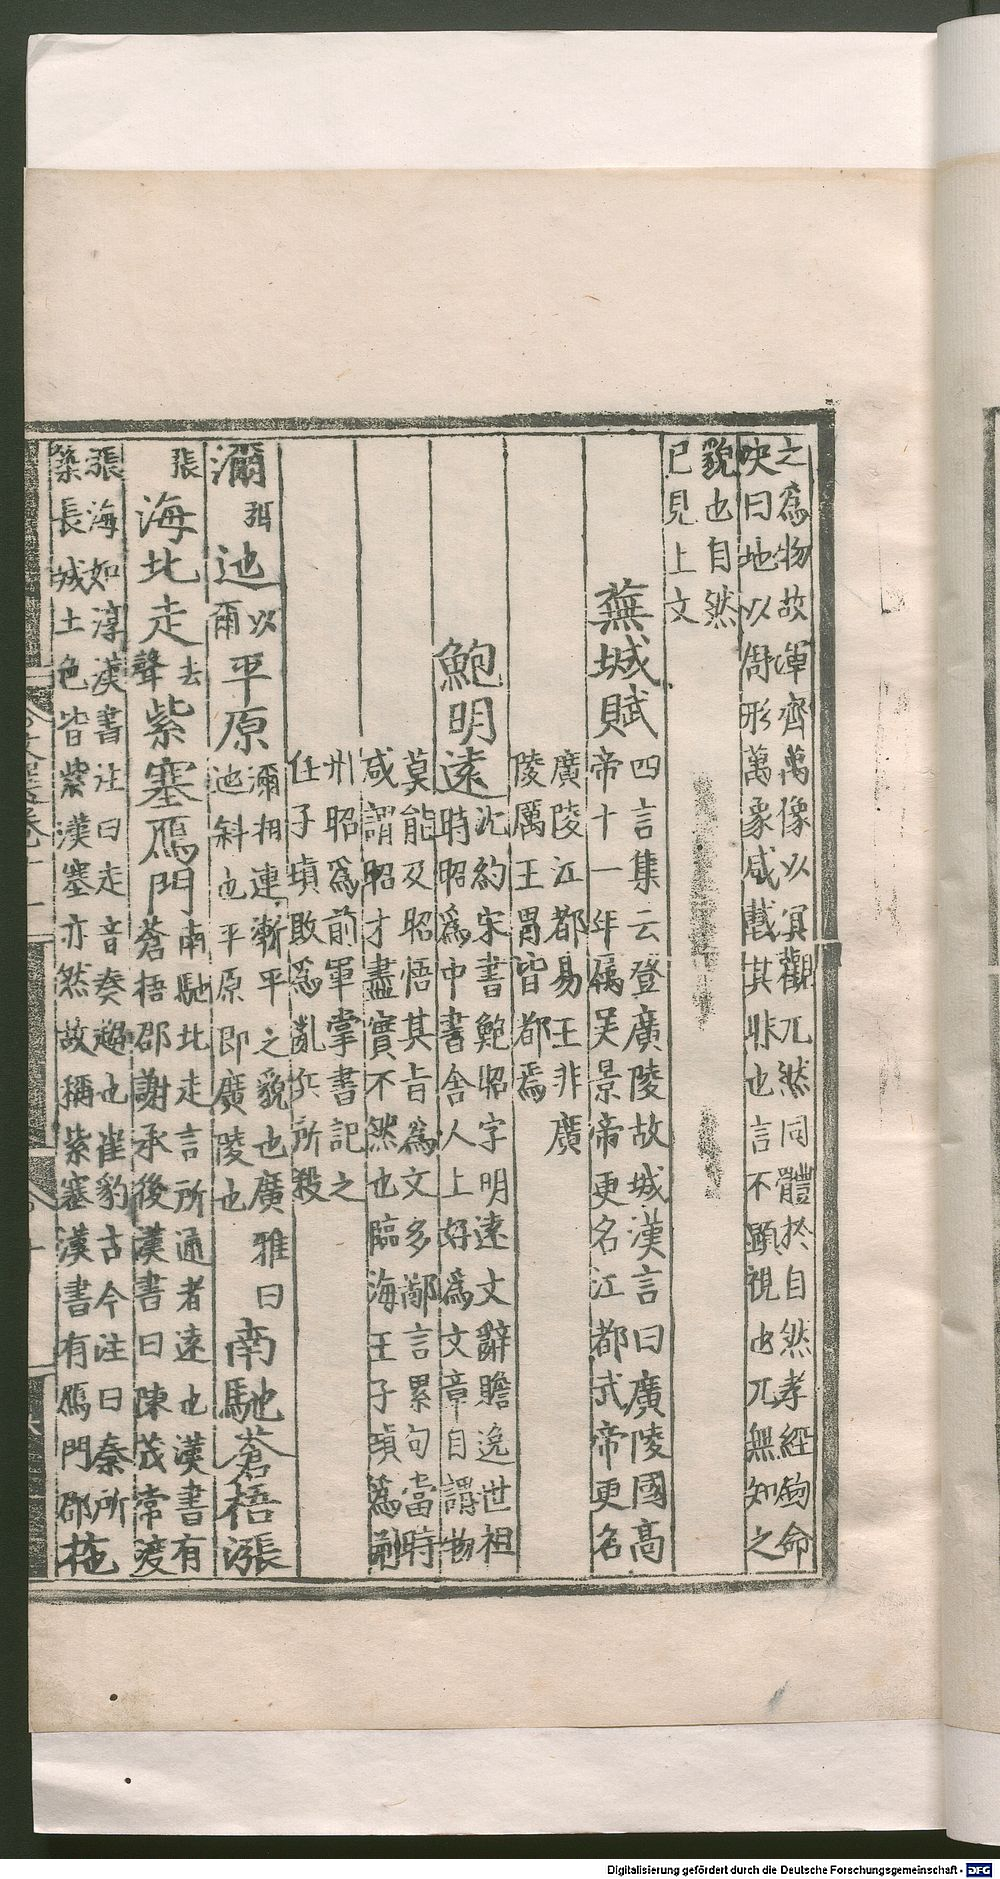 之爲物故渾齊萬像以冥觀兀然同體於自然孝經鉤命
决曰地以舒形萬象咸載其非也言不顯視也兀無知之
貌也自然
已見上文
蕪城賦
四言集云登廣陵故城漢言曰廣陵國高
帝十一年屬吳景帝更名江都武帝更名
廣陵江都易王非廣
陵厲王胥皆都焉
鮑明遠
沈約宋書鮑昭字明遠文辭贍逸世祖
時昭爲中書舍人上好爲文章自謂物
莫能及昭悟其旨爲文多鄙言累句當時
咸謂昭才盡實不然也臨海王子頊爲荊
州昭爲前軍掌書記之
任子頊敗爲亂兵所殺
瀰弭迆以爾平原瀰相連漸平之貌也廣雅曰
迆斜也平原即廣陵也南馳蒼梧漲
張海北走去聲紫塞鴈門南馳北走言所通者遠也漢書有
蒼梧郡謝承後漢書曰陳茂常渡
漲海如淳漢書注曰走音奏趨也崔豹古今注曰秦所
築長城土色皆紫漢塞亦然故稱紫塞漢書有鴈門郡柂
Digitalisierung gefördert durch die Deutsche Forschungsgemeinschaft - DFG